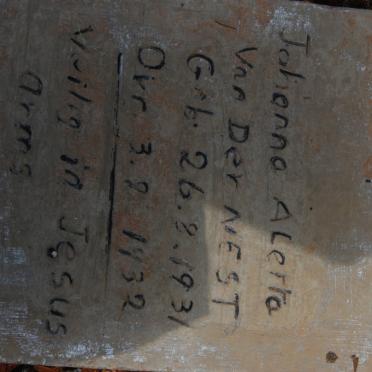 Julianna Alerta
Van Der NEST
Geb. 26.8.1931
Ovr. 3.8.1932
Veilig in Jesus
Arms